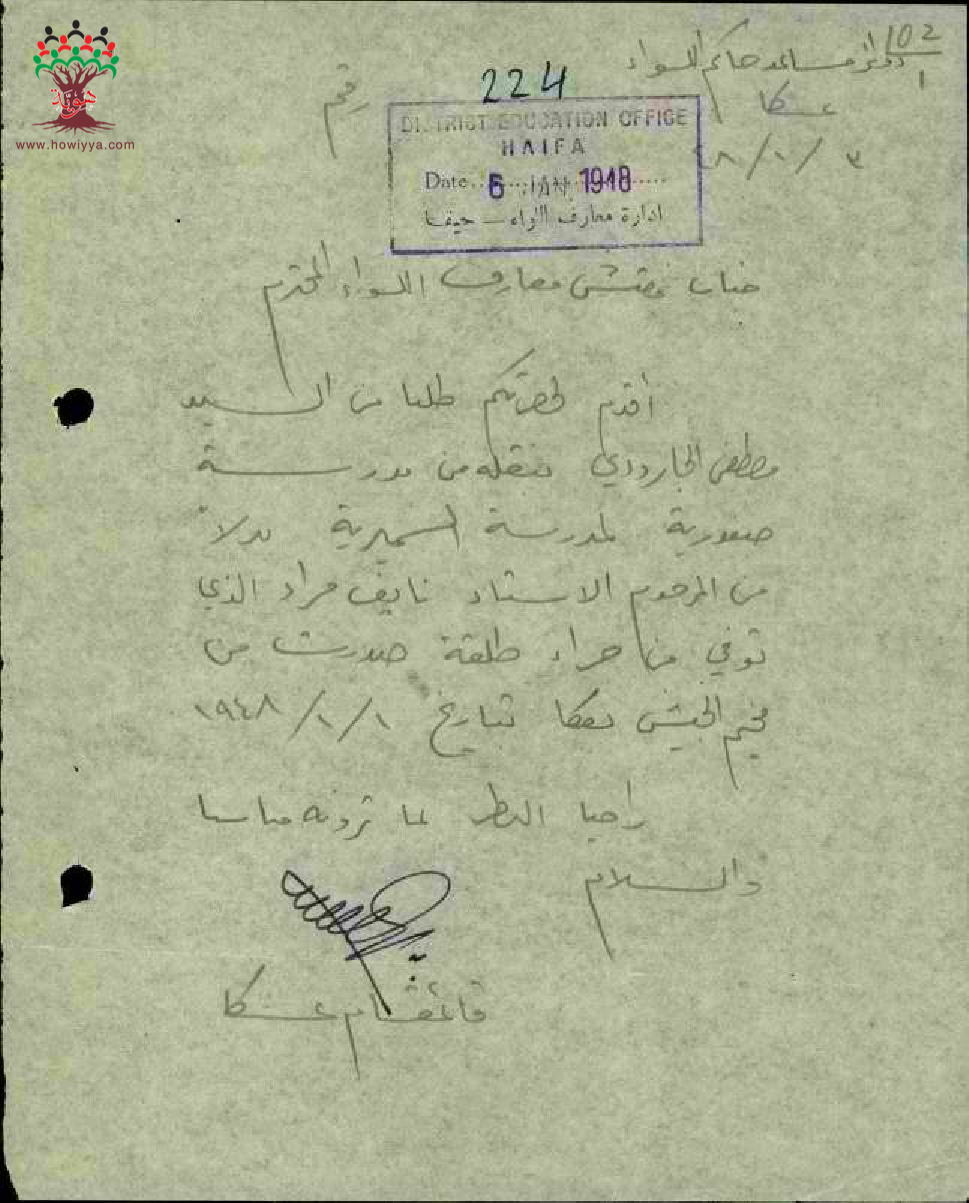 102
1
دوائر مساعد حاكم اللواء
عكا
٣ / ١ / ٤٨
رقم
224
DISTRICT EDUCATION OFFICE
HAIFA
Date 6 JAN 1948
ادارة معارف اللواء – حيفا
حوية
www.howiyya.com
جناب مفتش معارف اللواء المحترم
أقدم لحضرتكم طلبا من السيد
مصطفى الجارودي بنقله من مدرسة
صفورية لمدرسة السميرية بدلاً
من المرحوم الاستاذ نايف مراد الذي
توفي من جراء طلقة صدرت من
مخيم الجيش بعكا بتاريخ ١/١/١٩٤٨
راجيا النظر لما ترونه مناسبا
والسلام
قائمقام عكا